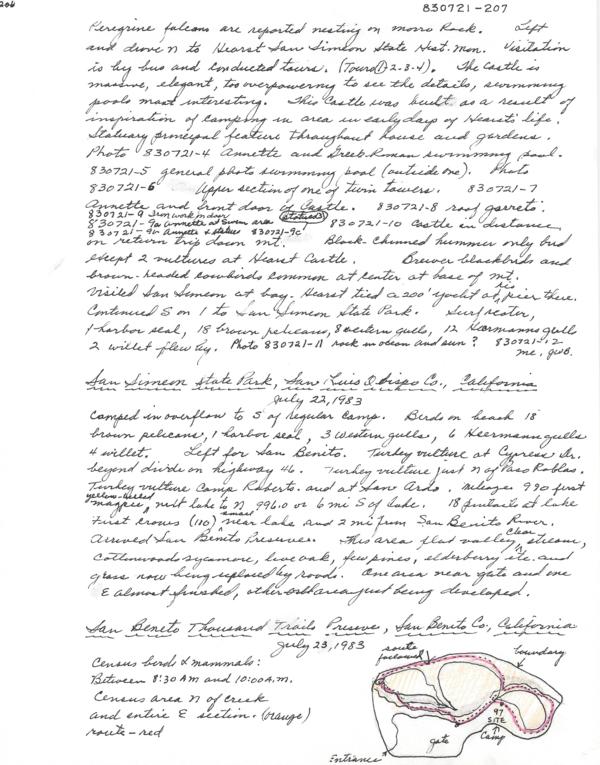 206
830721-207
Peregrine falcons are reported nesting on Morro Rock. Left
and drove N to Hearst San Simeon State Hist. Mon. Visitation
is by bus and conducted tours. (Tours 1, 2-3-4). The Castle is
massive, elegant, too overpowering to see the details, swimming
pools most interesting. This Castle was built as a result of
inspiration of camping in area in early days of Hearsts' life.
Statuary principal feature throughout house and gardens.
Photo 830721-4 Annette and Greek-Roman swimming pool.
830721-5 general photo swimming pool (outside one). Photo
830721-6 Upper section of one of twin towers. 830721-7
Annette and front door of Castle. 830721-8 roof
830721-9 Iron work in door
830721-9a Annette at swim area (statues) 830721-10 Castle in distance
830721-9b Annette & statue 830721-9c
on return trip down mt. Black-chinned hummer only bird
except 2 vultures at Hearst Castle. Brewer blackbirds and
brown-headed cowbirds common at center at base of mt.
Visited San Simeon at bay. Hearst tied a 200' yacht at his pier there.
Continued S on 1 to San Simeon State Park. Surf scoter,
1 harbor seal, 18 brown pelicans, 8 western gulls, 12 Heermanns gulls
2 willet flew by. Photo 830721-11 rock in ocean and sun? 830721-12
me,
San Simeon State Park, San Luis Obispo Co., California
July 22, 1983
Camped in overflow to S of regular camp. Birds on beach 18
brown pelicans, 1 harbor seal, 3 western gulls, 6 Heermann gulls
4 willet. Left for San Benito. Turkey vulture at Cypress Dr.
beyond divide on highway 46. Turkey vulture just N of Paso Robles.
Turkey vulture Camp Roberts. and at San Ardo. Mileage 990 first
yellow-billed
magpie, next lake to N 996.0 or 6 mi S of lake. 18 pintails at lake
small
First crows (110) near lake and 2 mi from San Benito River.
Arrived San Benito Preserve. This area flat valley, clear stream,
Cottonwoods sycamore, live oak, few pines, elderberry etc. and
grass now being replaced by roads. One area near gate and one
E almost finished, other area just being developed.
San Benito Thousand Trails Preserve, San Benito Co., California
July 23, 1983
Census birds & mammals:
Between 8:30 AM and 10:00 A.M.
Census area N of creek
and entire E section. (orange)
route - red
route followed
boundary
97
SITE
Camp
gate
Entrance